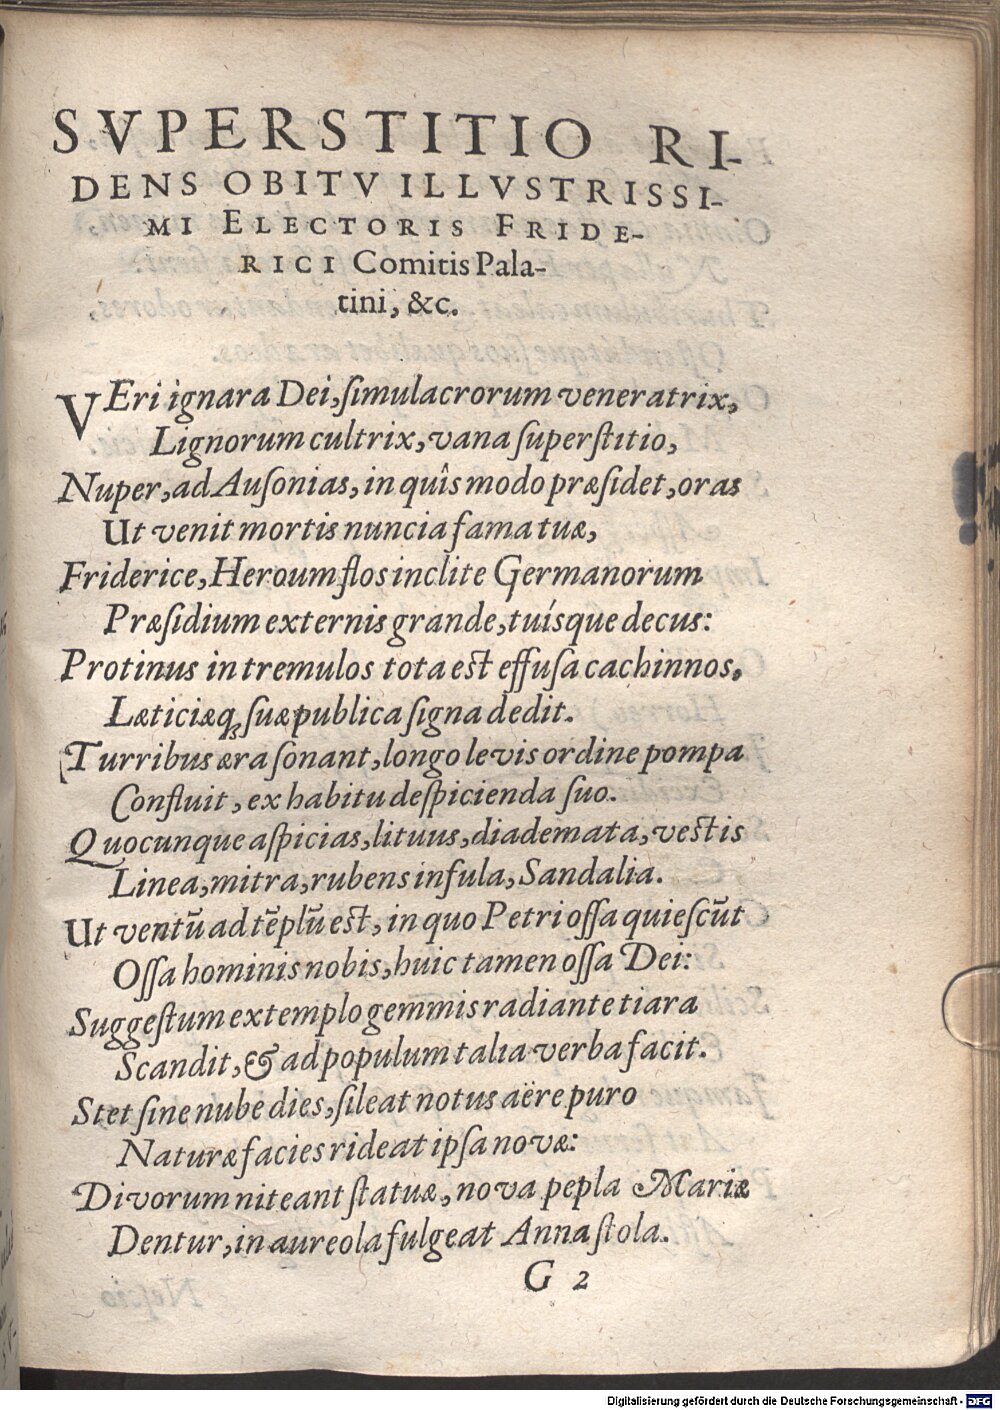 SVPERSTITIO RI-
DENS OBITV ILLVSTRISSI-
MI ELECTORIS FRIDE-
RICI Comitis Pala-
tini, &c.
VEri ignara Dei, ſimulacrorum veneratrix,
Lignorum cultrix, vana ſuperſtitio,
Nuper, ad Auſonias, in quîs modo præſidet, oras
Ut venit mortis nuncia fama tuæ,
Friderice, Heroum flos inclite Germanorum
Præſidium externis grande, tuísque decus:
Protinus in tremulos tota eſt effuſa cachinnos,
Læticiæq́ꝫ ſuæ publica ſigna dedit.
Turribus æra ſonant, longo levis ordine pompa
Confluit, ex habitu deſpicienda ſuo.
Quocunque aſpicias, lituus, diademata, veſtis
Linea, mitra, rubens infula, Sandalia.
Ut ventũ ad tẽplũ eſt, in quo Petri oſſa quieſcũt
Oſſa hominis nobis, huic tamen oſſa Dei:
Suggeſtum extemplo gemmis radiante tiara
Scandit, & ad populum talia verba facit.
Stet ſine nube dies, ſileat notus aëre puro
Naturæ facies rideat ipſa novæ:
Divorum niteant ſtatuæ, nova pepla Mariæ
Dentur, in aureola fulgeat Anna ſtola.
G 2
Digitalisierung gefördert durch die Deutsche Forschungsgemeinschaft - DFG